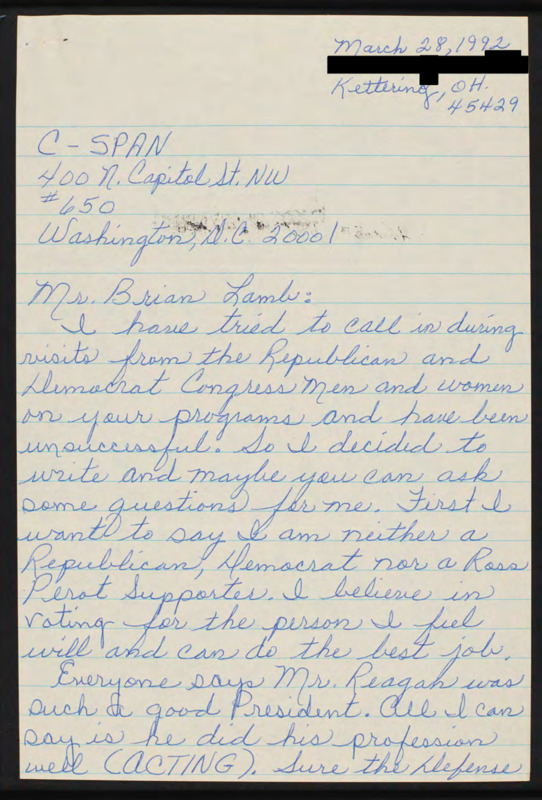 March 28, 1992
Kettering, OH.
45429
C-SPAN
400 N. Capitol St. NW
#650
Washington, D.C. 20001
Mr. Brian Lamb:
I have tried to call in during
visits from the Republican and
Democrat Congress Men and women
on your programs and have been
unsuccessful. So I decided to
write and maybe you can ask
some questions for me. First I
want to say I am neither a
Republican, Democrat nor a Ross
Perot Supporter. I believe in
voting for the person I feel
will and can do the best job.
Everyone says Mr. Reagan was
such a good President. All I can
say is he did his profession
well (ACTING). Sure the Defense